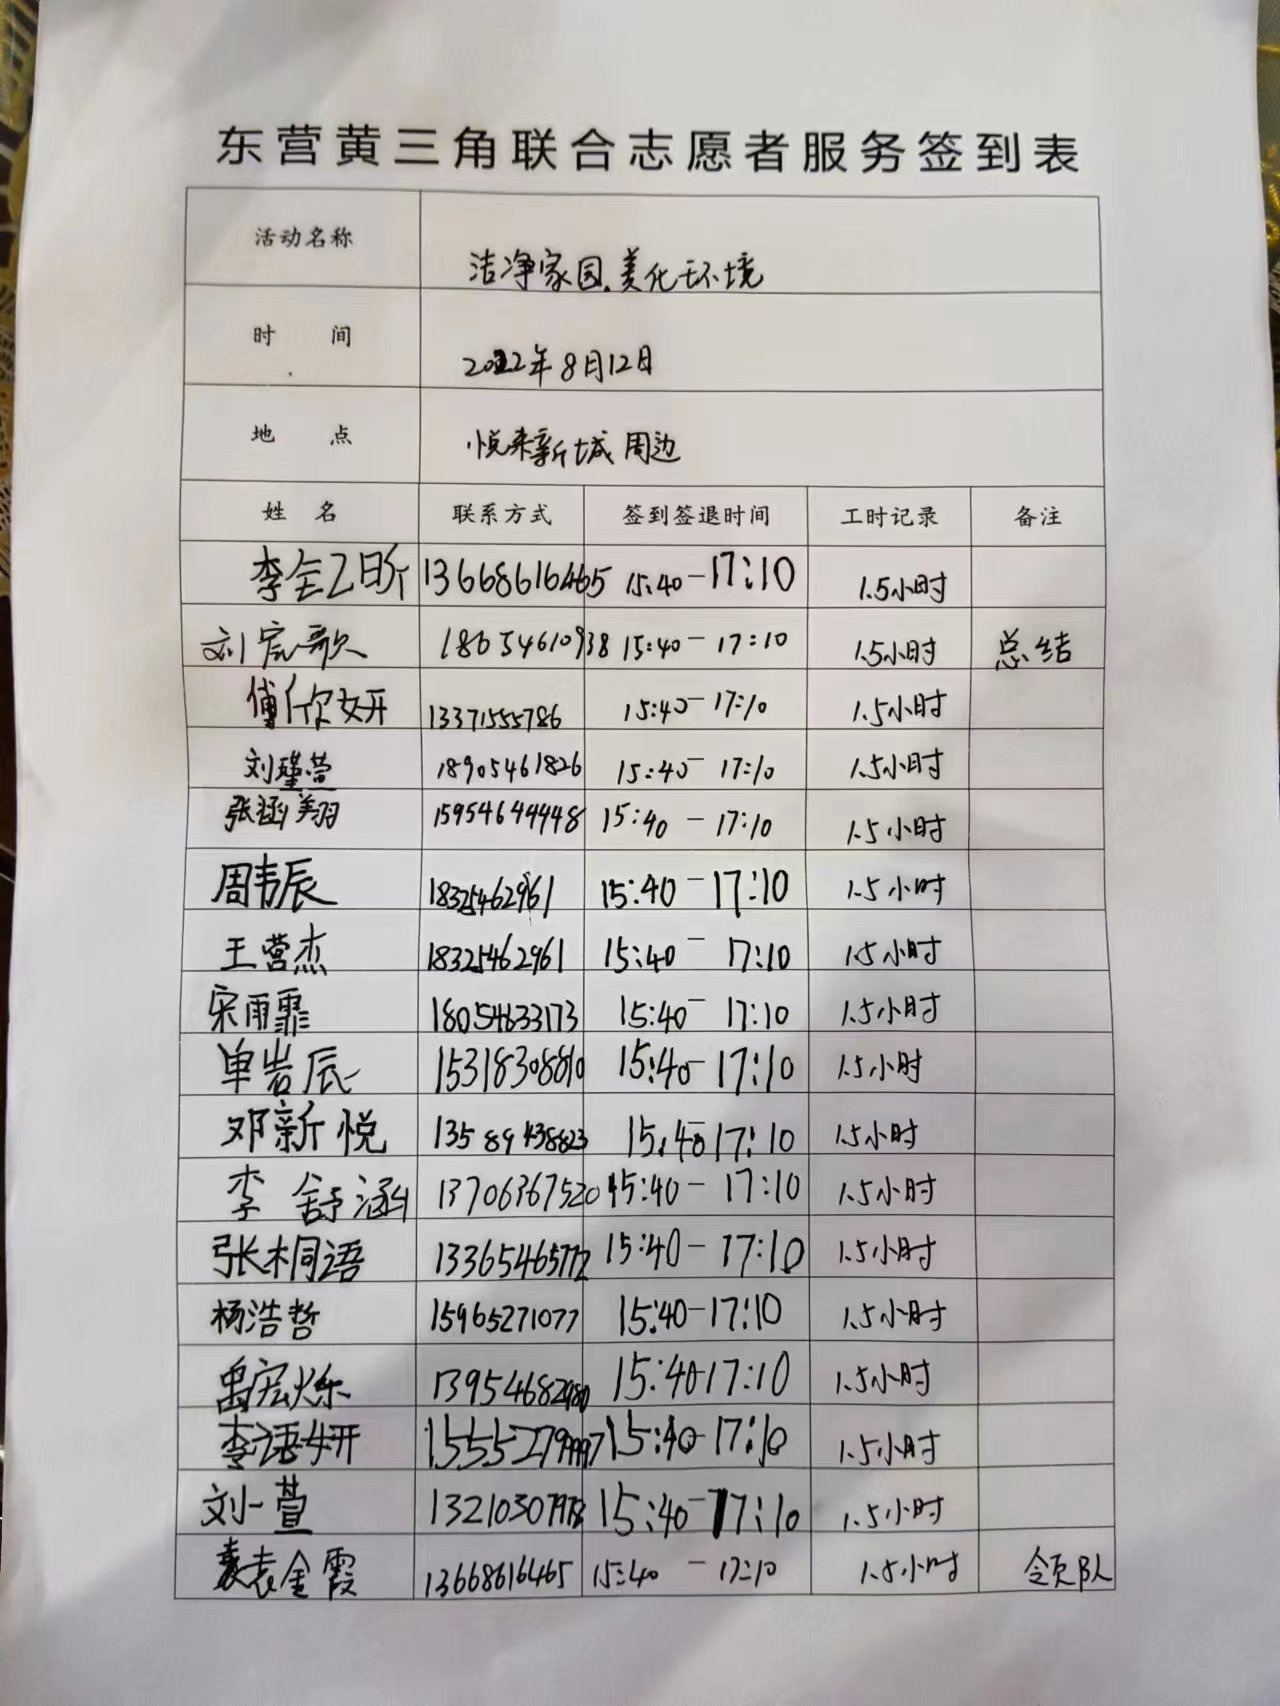 东营黄三角联合志愿者服务签到表
活动名称 洁净家园.美化环境
时 间 2022年8月12日
地 点 悦来新城周边
姓 名 联系方式 签到签退时间 工时记录 备注
李 13668616465 15:40-17:10 1.5小时
刘宸歌 18654610938 15:40-17:10 1.5小时 总结
傅你妍 13371555786 15:40-17:10 1.5小时
刘瑾萱 18905461826 15:40-17:10 1.5小时
张涵翔 15954644448 15:40-17:10 1.5小时
周韦辰 18325462961 15:40-17:10 1.5小时
王营杰 18325462961 15:40-17:10 1.5小时
宋雨霏 18054633173 15:40-17:10 1.5小时
单岩辰 15318308810 15:40-17:10 1.5小时
邓新悦 13589438823 15:40-17:10 1.5小时
李舒涵 13706367520 15:40-17:10 1.5小时
张桐语 13365465772 15:40-17:10 1.5小时
杨浩哲 15965271077 15:40-17:10 1.5小时
禹宏烁 13954682980 15:40-17:10 1.5小时
李语妍 15552799997 15:40-17:10 1.5小时
刘一萱 13210307978 15:40-17:10 1.5小时
袁金霞 13668616465 15:40-17:10 1.5小时 领队